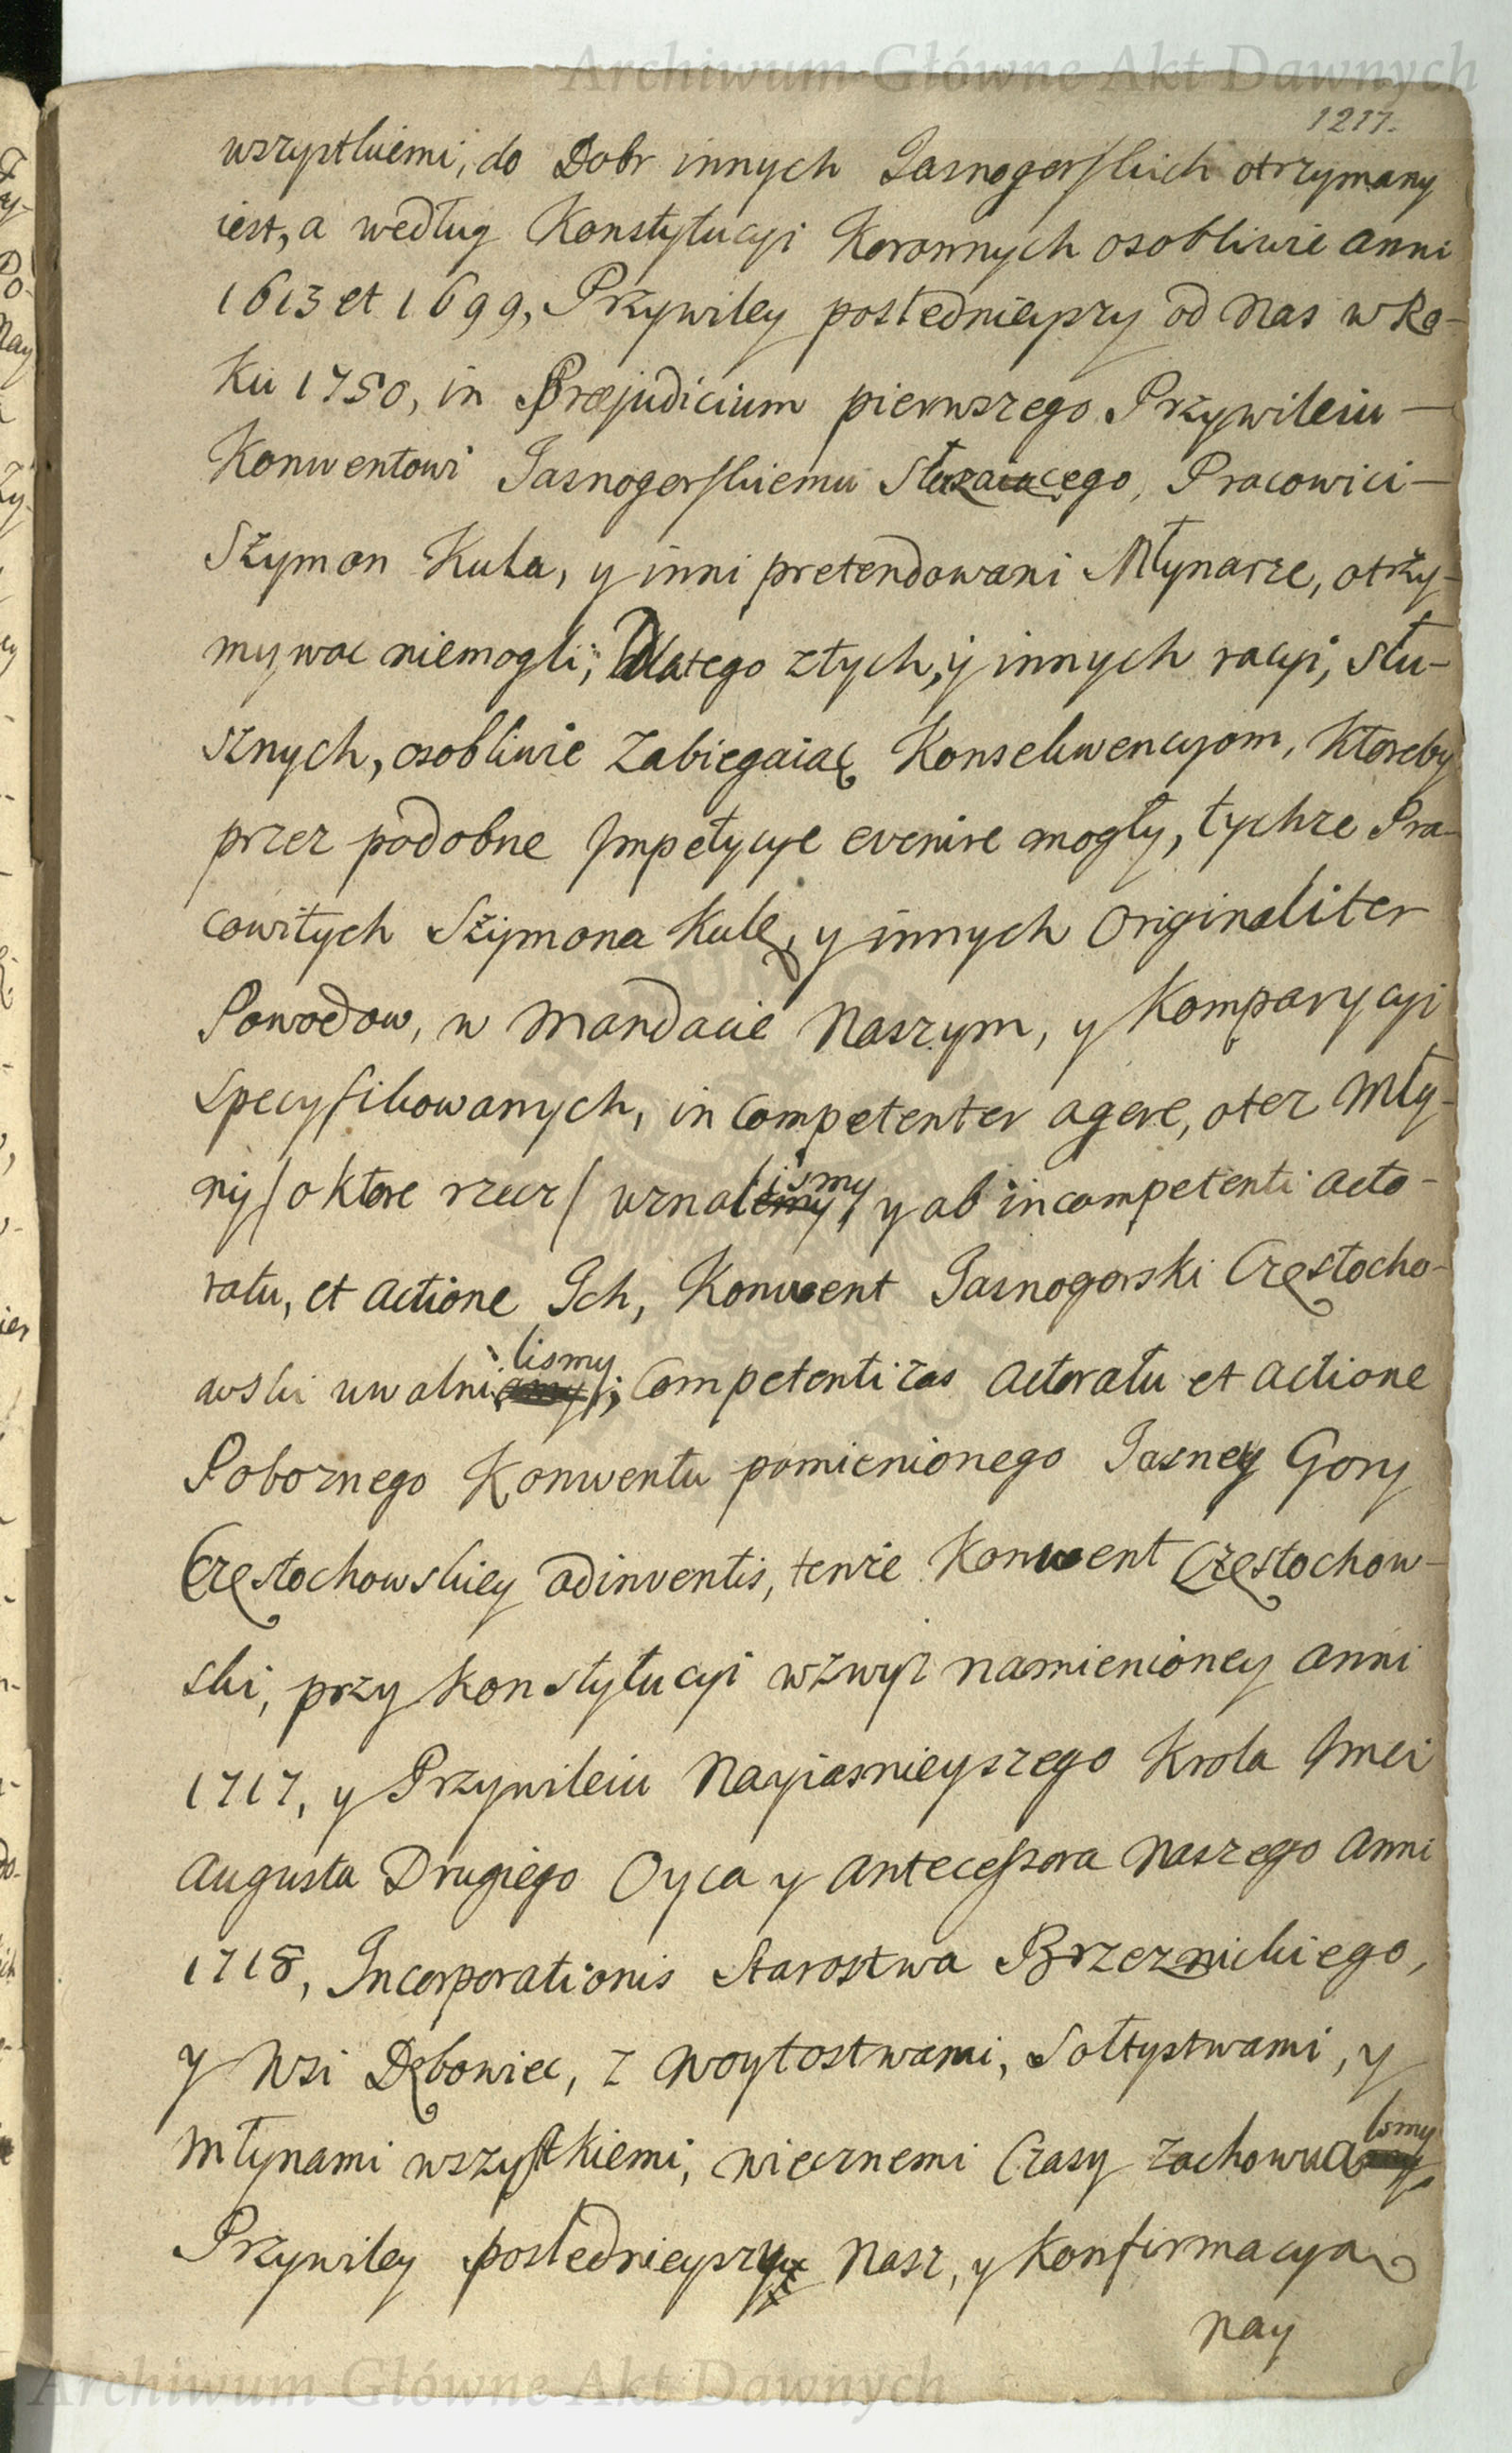 Archiwum Główne Akt Dawnych
1217.
wszystkiemi, do Dobr innych Jasnogorskich otrzymany
iest, a według Konstytucyi Koronnych osobliwie anni
1613 et 1699, Przywiley poslednieyszy od Nas w Ro-
ku 1750, in Præjudicium pierwszego Przywileiu —
Konwentowi Jasnogorskiemu słuzaiącego, Pracowici —
Szymon Kula, y inni pretendowani Młynarze, otrzy-
mywac niemogli; Dlatego z tych, y innych racyi, słu-
sznych, osobliwie zabiegaiąc Konsekwencyom, ktoreby
przez podobne Impetycye evenire mogły, tychze Pra-
cowitych Szymona Kulę, y innych Originaliter
Powodow, w Mandacie Naszym, y Komparycyi
specyfikowanych, incompetenter agere, otez Mły-
ny / o ktore rzecz / uznalismy, y ab incompetenti acto-
ratu, et actione Ich, Konwent Jasnogorski Częstocho-
wski uwolnilismy; Competenti zas actoratu et actione
Pobornego Konwentu pomienionego Jasney Gory
Częstochowskiey adinventis, tenze Konwent Częstochow-
ski, przy Konstytucyi wzwyz namienioney anni
1717, y Przywileiu Nayiasnieyszego Krola Jmci
Augusta Drugiego Oyca y Antecessora Naszego anni
1718, Incorporationis Starostwa Brzeznickiego,
y Wsi Dębowiec, z Woytostwami, Sołtystwami, y
Młynami wszystkiemi, wiecznemi Czasy zachowualismy
Przywiley poslednieyszy Nasz, y Konfirmacya
nay
Archiwum Główne Akt Dawnych